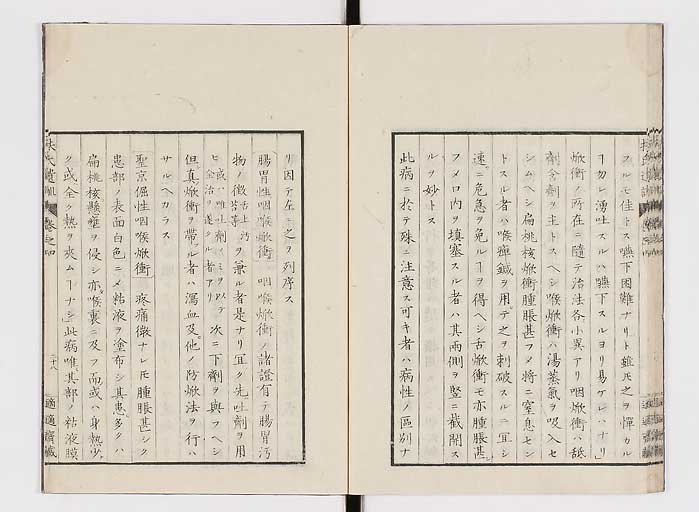 フルモ佳トス嚥下困難ナリト雖モ之ヲ憚カル
ヿ勿レ湧吐スルハ嚥下スルヨリ易ケレハナリ」
焮衝ノ所在ニ隨テ治法各小異アリ咽焮衝ハ舐
劑含劑ヲ主トスヘシ喉焮衝ハ湯蒸氣ヲ吸入セ
シムヘシ扁桃核焮衝腫脹甚フメ將ニ窒息セン
トスル者ハ喉痺鍼ヲ用テ之ヲ刺破スルニ宜シ
速ニ危急ヲ免ルヿヲ得ヘシ舌焮衝モ亦腫脹甚
フメ口内ヲ填塞スル者ハ其兩側ヲ竪ニ截開ス
ルヲ妙トス
此病ニ於テ殊ニ注意ス可キ者ハ病性ノ區別ナ
リ因テ左ニ之ヲ列序ス
腸胃性咽喉焮衝 咽喉焮衝ノ諸證有テ腸胃汚
物ノ徴舌上汚苔等ヲ兼ル者是ナリ宜ク先吐劑ヲ用
ヒ或ハ唯吐劑ノミヲ以テ全治ヲ遂クル者アリ次ニ下劑ヲ與フヘシ
但真焮衝ヲ帶ル者ハ瀉血及他ノ防焮法ヲ行ハ
サルヘカラス
聖京倔性咽喉焮衝 疼痛微ナレモ腫脹甚シク
患部ノ表面白色ニメ粘液ヲ塗布シ其患多クハ
扁桃核懸壅ヲ侵シ亦喉裏ニ及フ而或ハ身熱少
ク或全ク熱ヲ夾ムヿナシ此病唯其部ノ粘液膜
扶氏遺訓
卷之四
二十八
適適齋藏